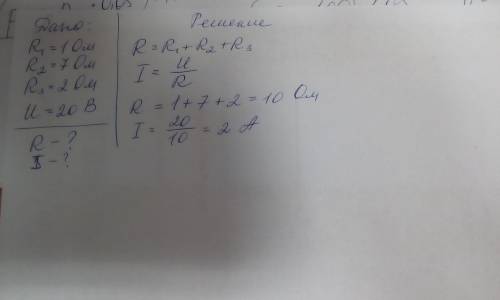 Дано:
R₁ = 1 Ом
R₂ = 7 Ом
R₃ = 2 Ом
U = 20 В
R - ?
I - ?
Решение
R = R₁ + R₂ + R₃
I = U/R
R = 1 + 7 + 2 = 10 Ом
I = 20/10 = 2 А